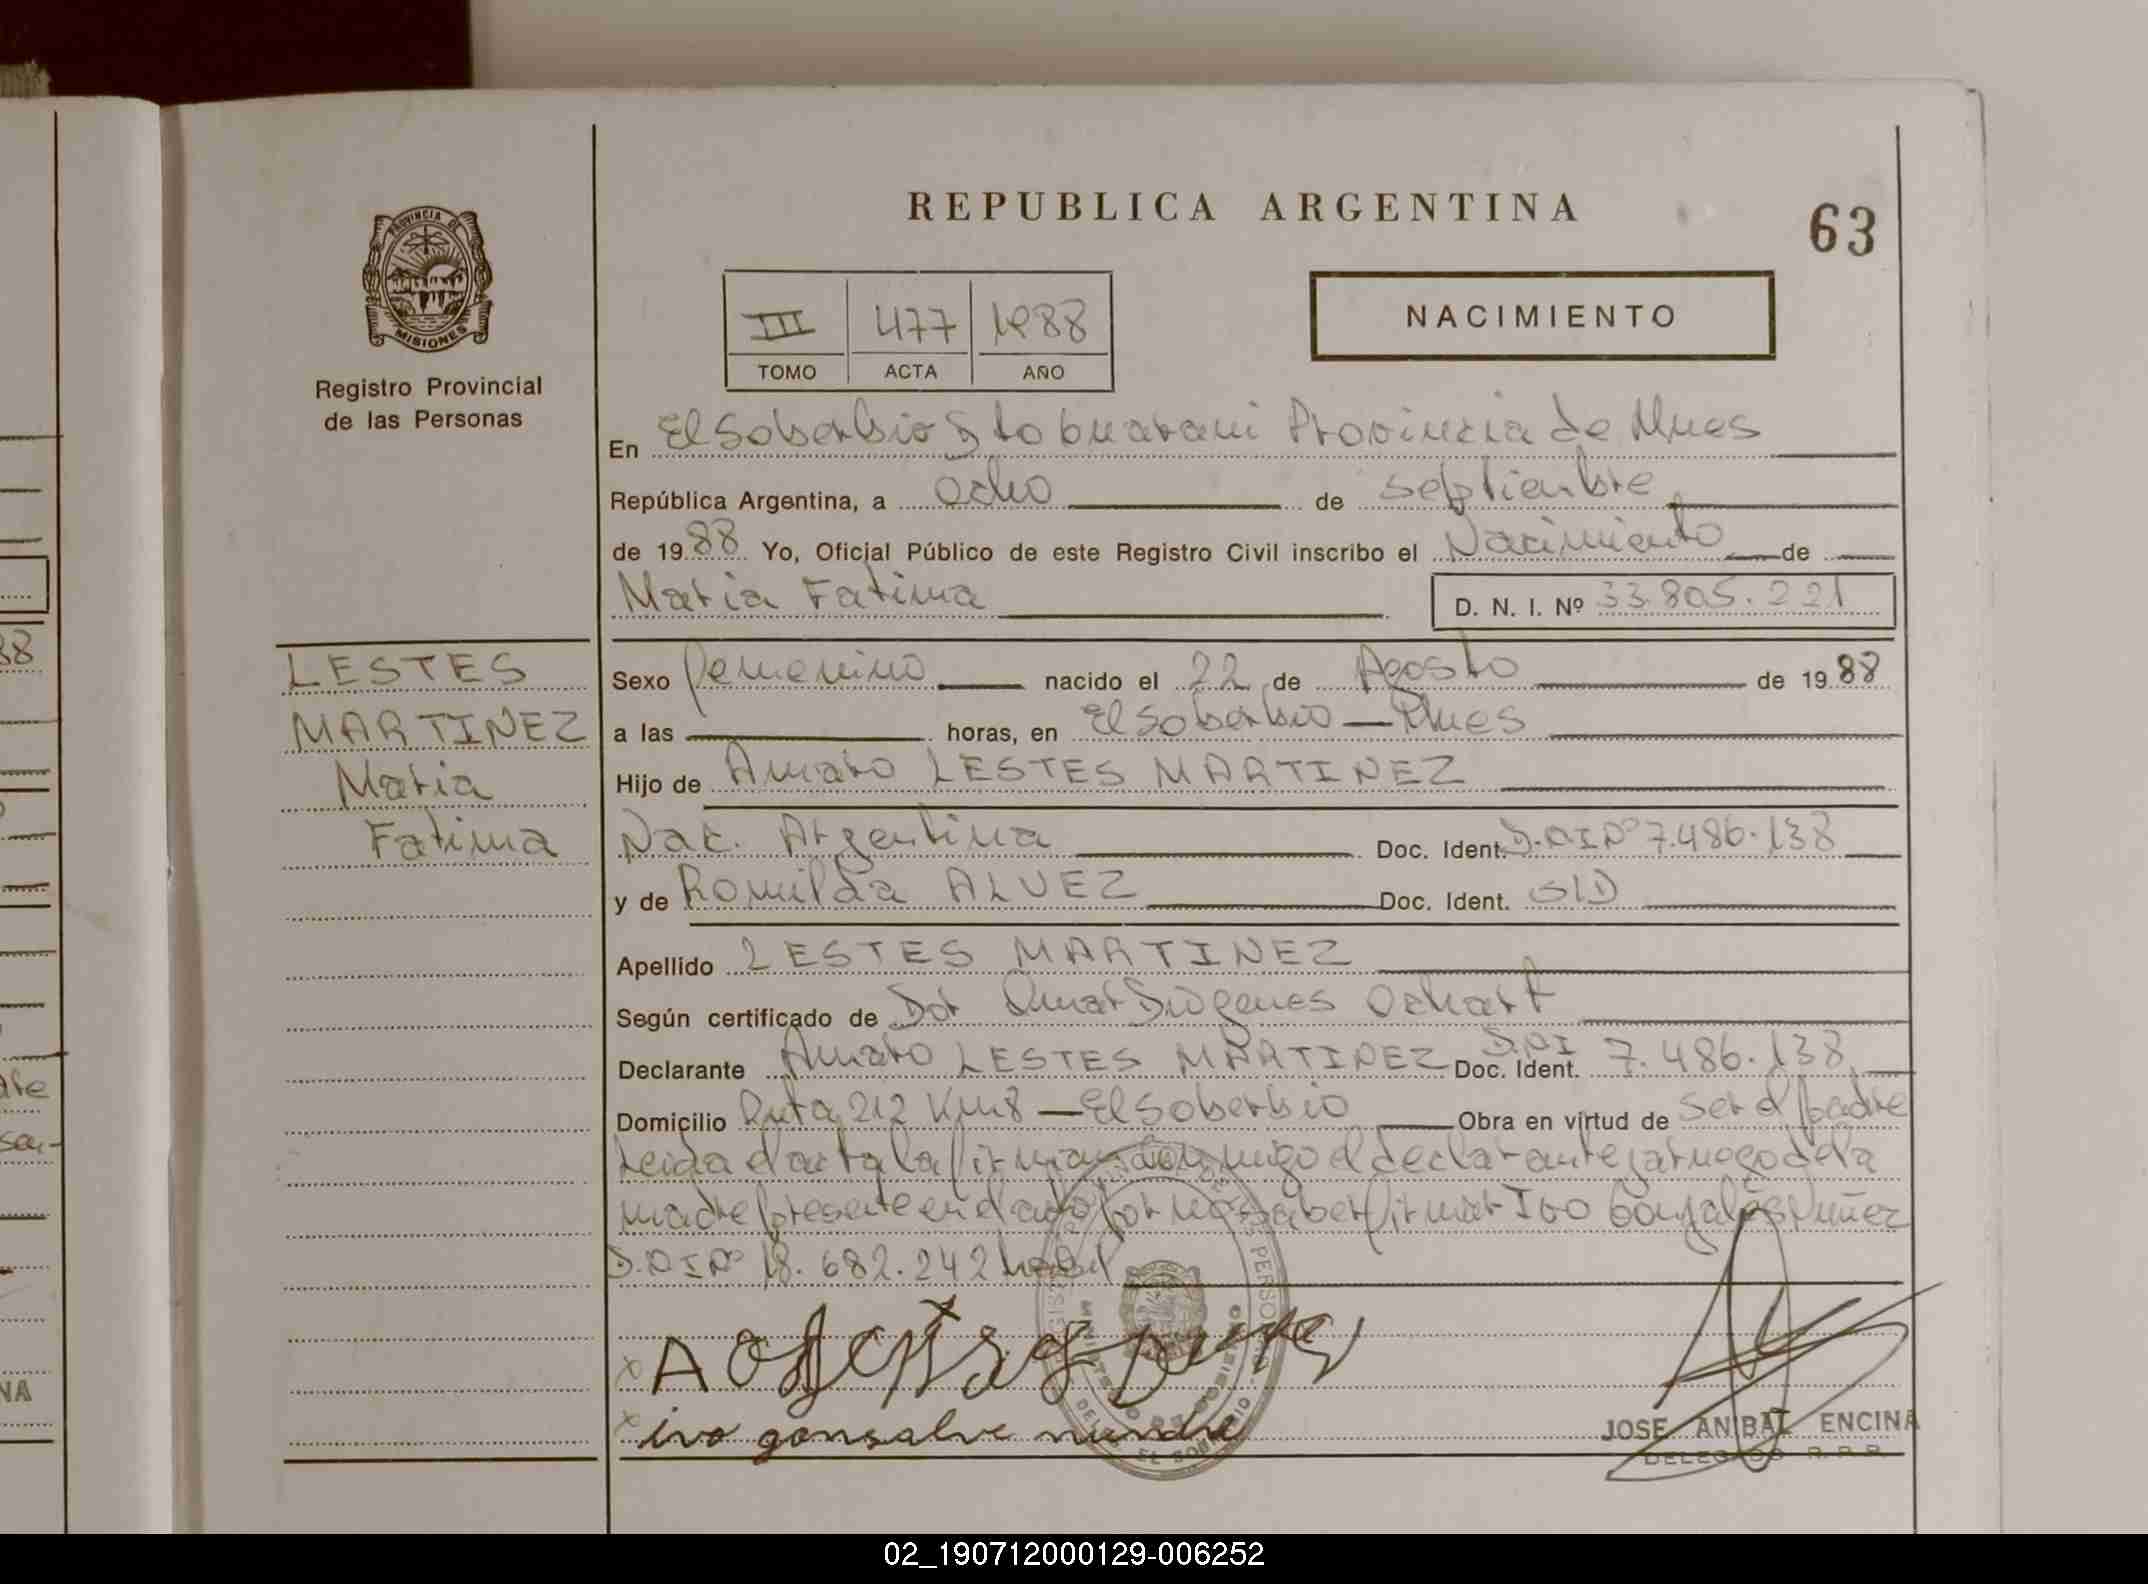 REPUBLICA ARGENTINA
63
PROVINCIA DE
MISIONES
Registro Provincial
de las Personas
III 477 1988
TOMO ACTA AÑO
NACIMIENTO
En El Soberbio Dto Guarani Provincia de Mnes
República Argentina, a ocho de septiembre
de 1988 Yo, Oficial Público de este Registro Civil inscribo el Nacimiento de
Maria Fatima D. N. I. Nº 33.805.221
LESTES
MARTINEZ
Maria
Fatima
Sexo femenino nacido el 22 de Agosto de 1988
a las horas, en El Soberbio - Mnes
Hijo de Amaro LESTES MARTINEZ
Nac. Argentina Doc. Ident. D.N.I Nº 7.486.138
y de Romilda ALVEZ Doc. Ident. S/D
Apellido LESTES MARTINEZ
Según certificado de Dor Omar Diogenes Ochart
Declarante Amaro LESTES MARTINEZ Doc. Ident. D.N.I 7.486.138
Domicilio Ruta 212 Km 8 - El Soberbio Obra en virtud de ser el padre
Leida el acta la firman conmigo el declarante y a ruego de la
madre presente en el acto por no saber firmar Ivo Gonzales Nuñez
D.N.I Nº 18.682.242
ivo gonsalve
JOSE ANIBAL ENCINA
DELEGADO R.P.P.
88
NA
02_190712000129-006252